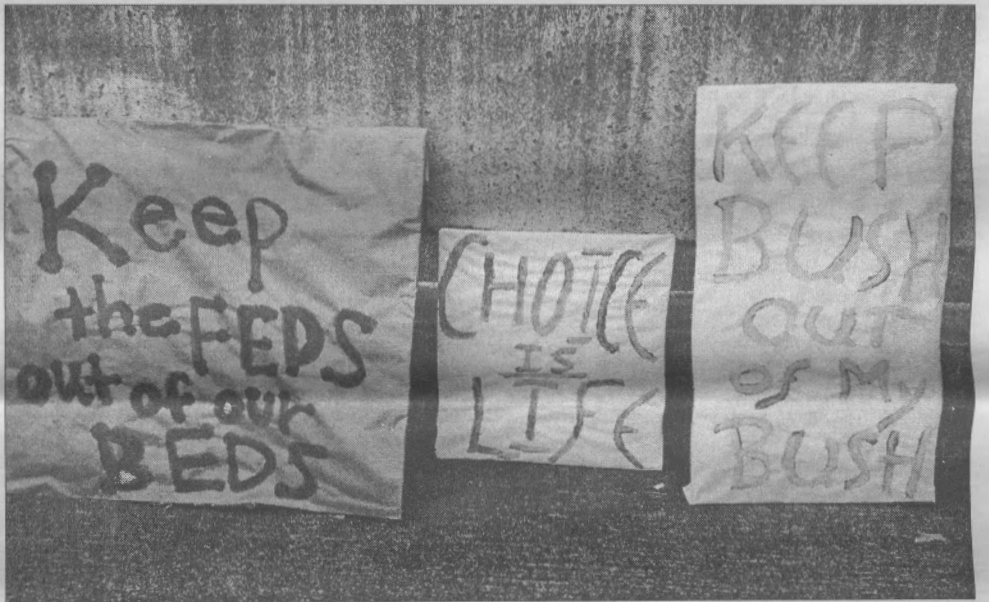 Keep
the FEDS
out of our
BEDS
CHOICE
IS
LIFE
KEEP
BUSH
OUT
OF My
BUSH